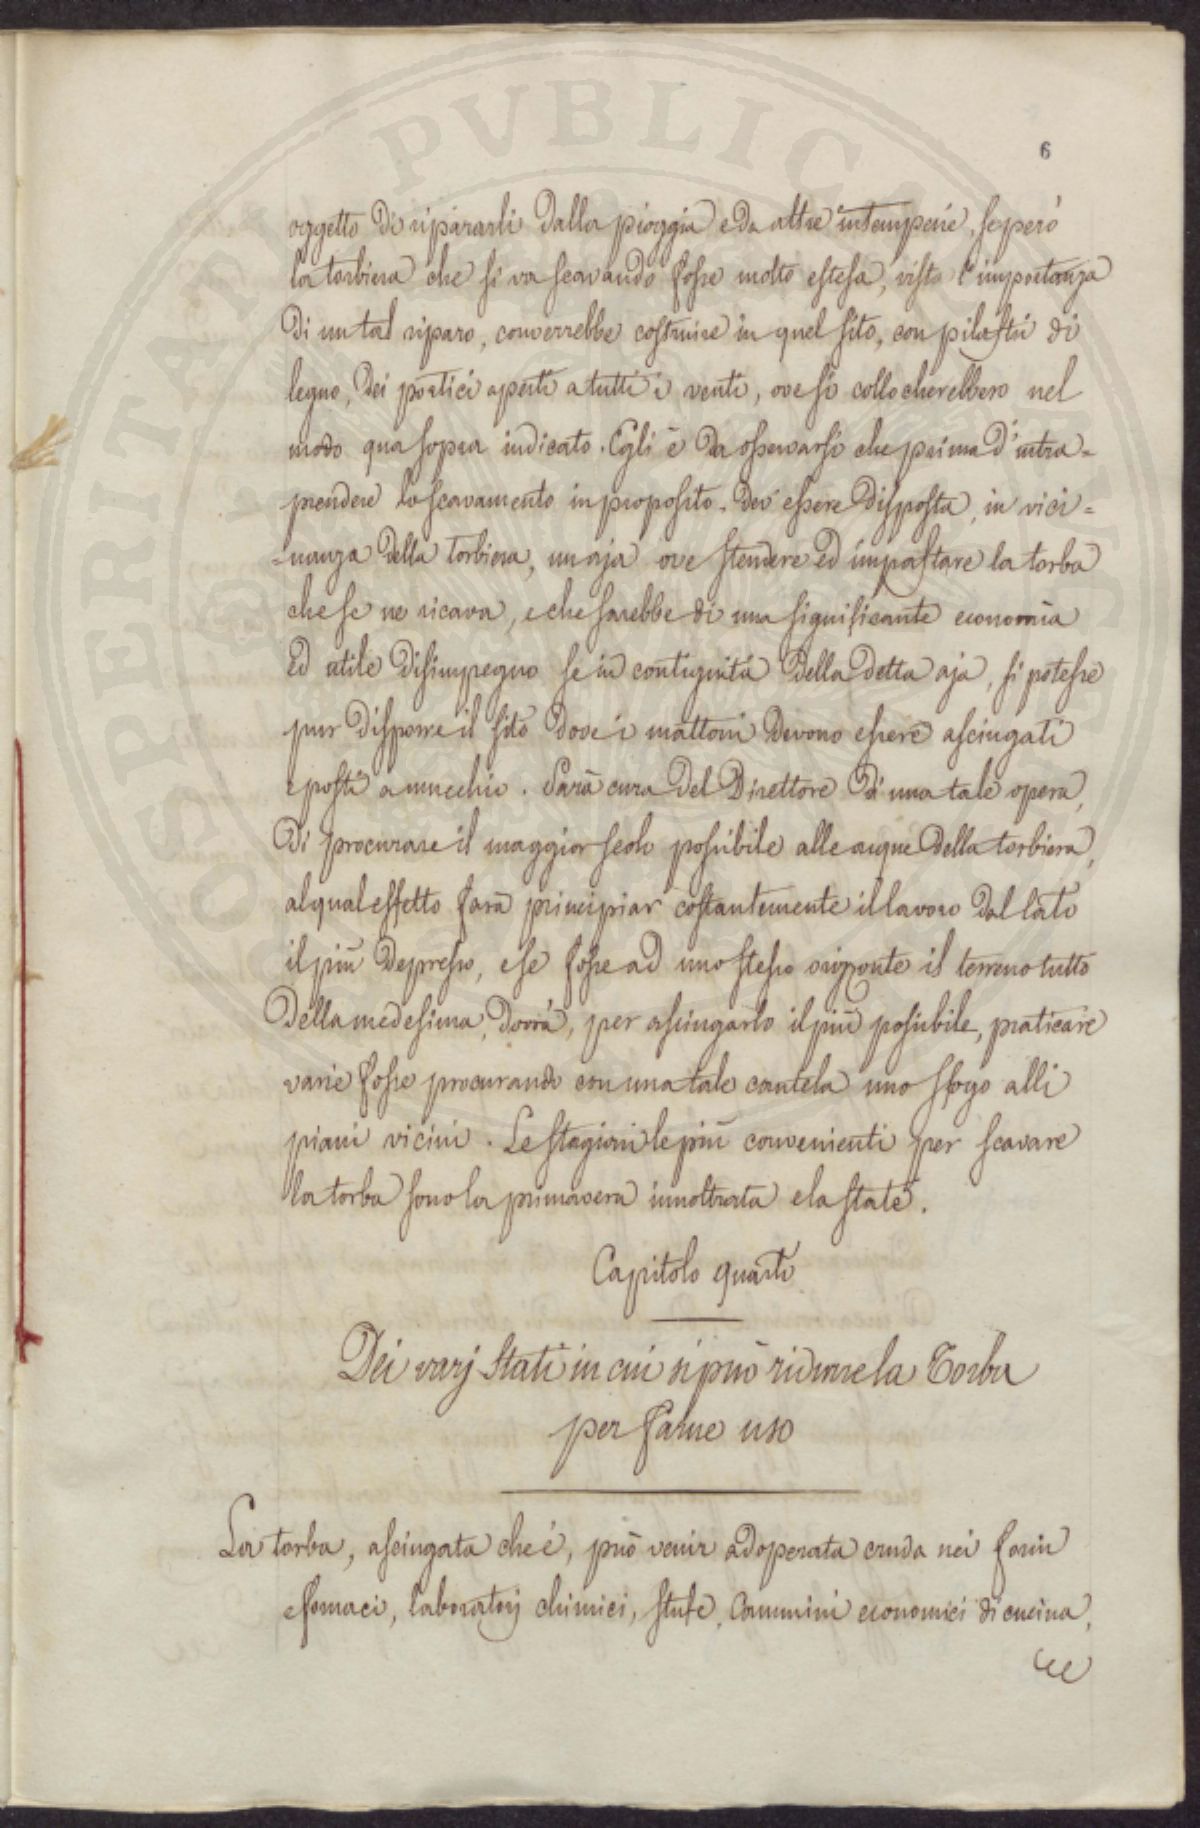 PROSPERITATI PVBLICAE
6
oggetto di ripararli dalla pioggia e da altre intemperie, se però
la torbiera che si va scavando fosse molto estesa, visto l'importanza
di un tal riparo, converrebbe costruire in quel sito, con pilastri di
legno, dei portici aperti a tutti i venti, ove si collocherebbero nel
modo qua sopra indicato. Egli è da osservarsi che prima d'intra=
prendere lo scavamento in proposito, dev'essere disposta, in vici=
=nanza della torbiera, un aja ove stendere ed impastare la torba
che se ne ricava, e che sarebbe di una significante economia
ed utile disimpegno se in contiguità della detta aja, si potesse
pur disporre il sito dove i mattoni devono essere asciugati
e posti a mucchio. Sarà cura del Direttore di una tale opera,
di procurare il maggior scolo possibile alle acque della torbiera,
al qual effetto farà principiar costantemente il lavoro dal lato
il più depresso, e se fosse ad uno stesso orizzonte il terreno tutto
della medesima, dovrà, per asciugarlo il più possibile, praticare
varie fosse procurando con una tale cautela uno sfogo alli
piani vicini. Le stagioni le più convenienti per scavare
la torba sono la primavera innoltrata e la state.
Capitolo quarto
Dei varj Stati in cui si può ridurre la Torba
per farne uso
La torba, asciugata che è, può venir adoperata cruda nei forni
e fornaci, laboratorj chimici, stufe, Cammini economici di cucina,